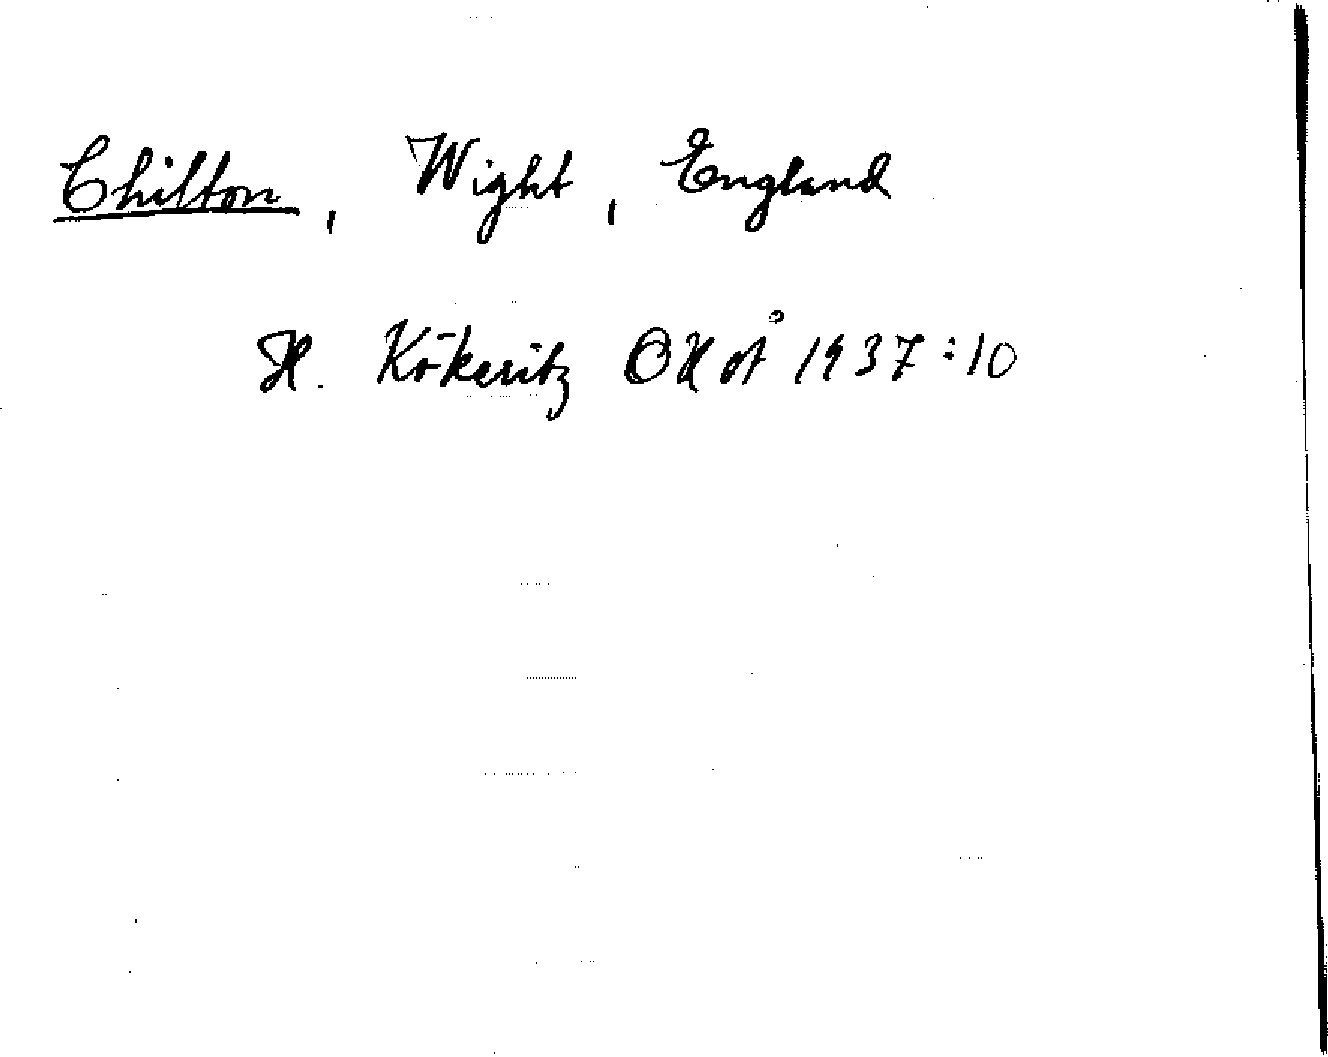 Chilton, Wight, England
H. Kökeritz OHOÅ 1937:10